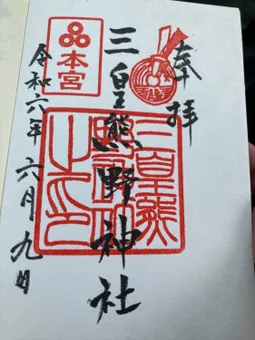 奉拝
本宮
三皇熊野神社
三皇熊野神社之印
令和六年六月九日